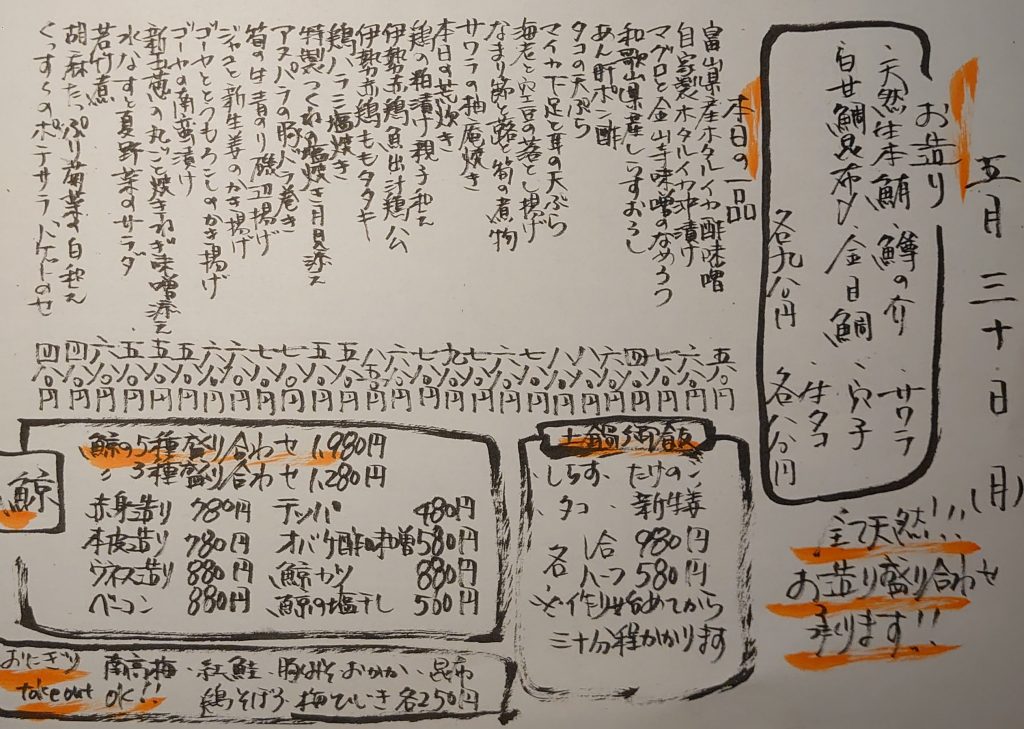 五月三十日(月)
お造り
・天然生本鮪 ・鱒の介 ・サワラ
・白甘鯛昆布〆 ・金目鯛 ・穴子
・生タコ
各九八〇円 各八八〇円
全て天然!!!
お造り盛り合わせ
承ります!!
本日の一品
富山県産ホタルイカ酢味噌 五八〇円
自家製ホタルイカ沖漬け 六八〇円
マグロと金山寺味噌のなめろう 七八〇円
和歌山県産しらすおろし 四八〇円
あん肝ポン酢 六八〇円
タコの天ぷら 八八〇円
マイカ下足と耳の天ぷら 八八〇円
海老と空豆の落とし揚げ 七八〇円
なまり節と蕗と筍の煮物 六八〇円
サワラの柚庵焼き 七八〇円
本日の荒炊き 九八〇円
鶏の粕漬け親子和え 七八〇円
伊勢赤鶏魚出汁鶏ハム 六八〇円
伊勢赤鶏ももタタキ
鶏ハラミ塩焼き 五八〇円
特製つくねの塩焼き月見添え 五八〇円
アスパラの豚バラ巻き 七八〇円
筍の生青のり磯辺揚げ 七八〇円
ジャコと新生姜のかき揚げ 六八〇円
ゴーヤととうもろこしのかき揚げ 六八〇円
ゴーヤの南蛮漬け 五八〇円
新玉葱の丸ごと焼きねぎ味噌添え 五八〇円
水なすと夏野菜のサラダ 五八〇円
若竹煮 六八〇円
胡麻たっぷり菊菜の白和え 四八〇円
くんすくのポテサラバゲットのせ 四八〇円
土鍋御飯
しらす たけのこ
タコ 新生姜
各 一合 980円
ハーフ 580円
※作り始めてから
三十分程かかります
鯨
鯨の5種盛り合わせ 1,980円
〃 3種盛り合わせ 1,280円
赤身造り 780円 テッパ 480円
本皮造り 780円 オバケ酢味噌 580円
ウネス造り 880円 鯨カツ 880円
ベーコン 880円 鯨の塩干し 500円
おにぎり 南高梅・紅鮭・豚みそ・おかか・昆布
take out OK!! 鶏そぼろ・梅ひじき 各250円